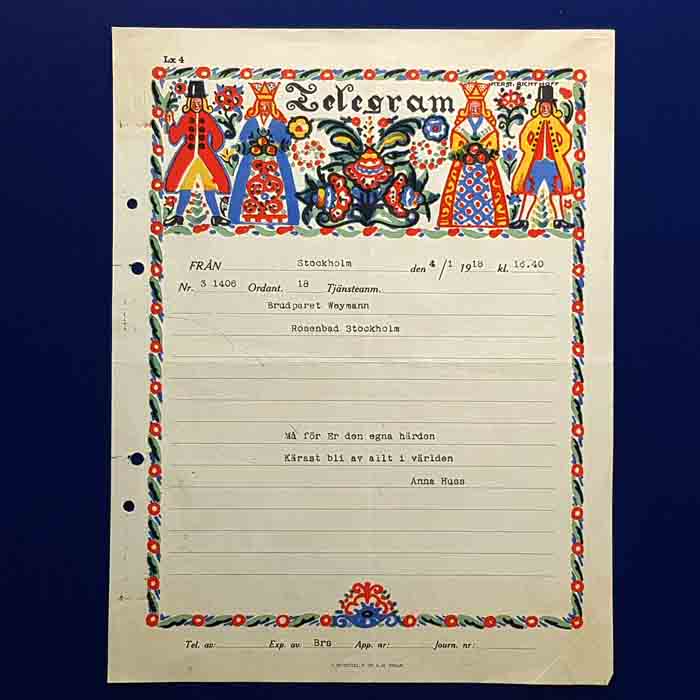 Lx 4
Telegram
FRÅN Stockholm den 4/1 1918 kl. 16.40
Nr. 3 1406 Ordant. 18 Tjänsteanm.
Brudparet Weymann
Rosenbad Stockholm
Må för Er den egna härden
Kärast bli av allt i världen
Anna Huss
Tel. av: Exp. av Bra App. nr: Journ. nr: